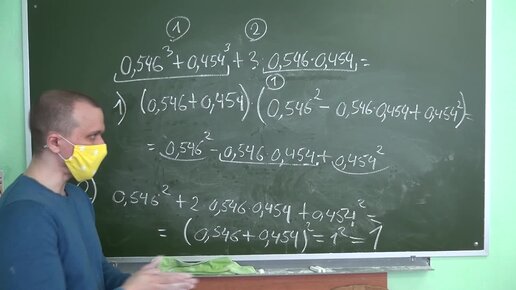 ① ②
0,546³ + 0,454³ + 3 · 0,546 · 0,454 =
①
1) (0,546 + 0,454) (0,546² − 0,546·0,454 + 0,454²) =
= 0,546² − 0,546·0,454 + 0,454²
) 0,546² + 2 · 0,546 · 0,454 + 0,454² =
= (0,546 + 0,454)² = 1² = 1